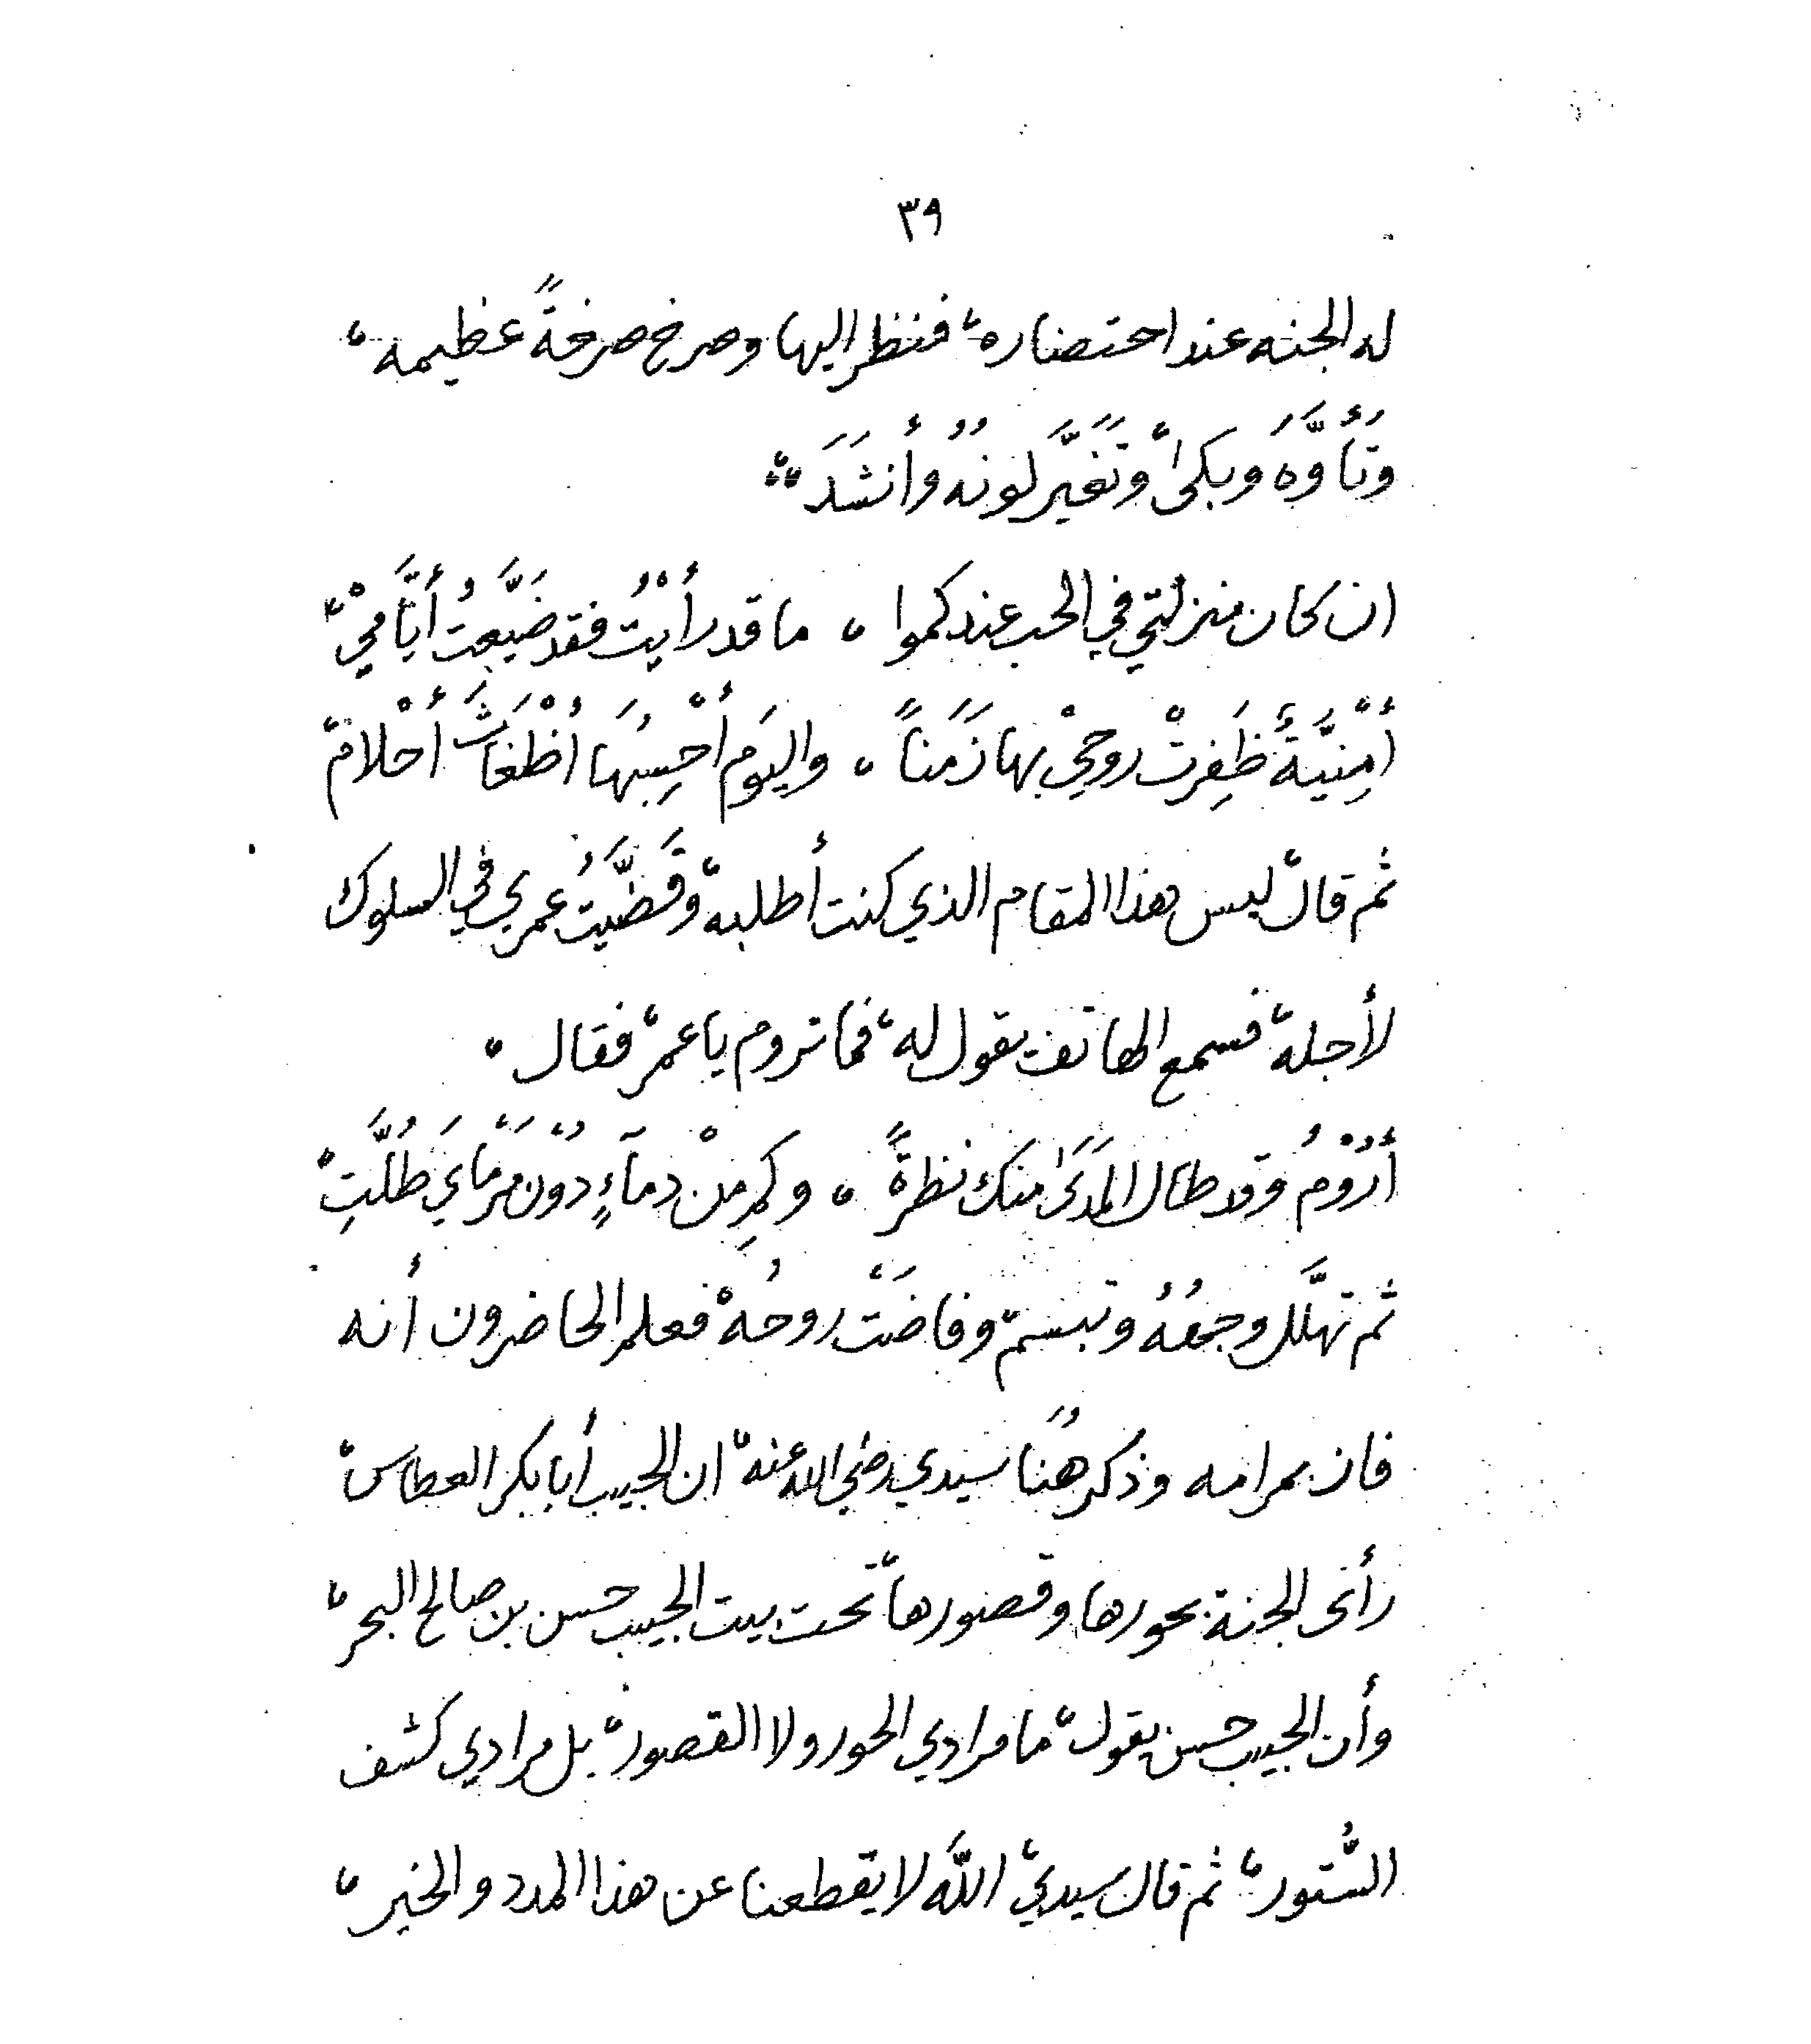 ٣٩
له الجنه عند احتضاره، فنظر اليها وصرخ صرخةً عظيمه،
وتَأَوَّهَ وبكى، وتَغَيَّر لونُهُ وأَنشَدَ،،
ان كان منزلتي في الحب عندكموا ، ما قد رأيْتُ فقد ضَيَّعتُ أيَّامِيْ،
أُمْنِيَّةً ظَفِرتْ روحيْ بها زَمَناً ، واليَوم أحْسِبُهَا أظْغاثَ أحْلامْ
ثم قال، ليس هذا المقام الذي كنت أطلبه، وقَضَّيتُ عمري في السلوك
لأجله، فسمع الهاتف يقول له، فما تروم يا عمر، فقال ،
أرُوْمُ وقد طال المَدَى منك نظرةً ، وكم مِنْ دمآءٍ دُوْن مَرْمَايَ طُلَّتِ،
ثم تهلَّل وجهُهُ وتبسم، وفاضَتْ روحُهْ فعلم الحاضرون أنه
فاز بمرامه وذكر هُنا سيدي رضي الله عنه، ان الحبيب أبابكر العطاس،
رأى الجنة بحورها وقصورها، تحت بيت الحبيب حسن بن صالح البحر،
وأن الحبيب حسن يقول، ما مرادي الحور ولا القصور، بل مرادي كشف
السُّتور، ثم قال سيدي، اللَّه لا يقطعنا عن هذا المدد والخير،